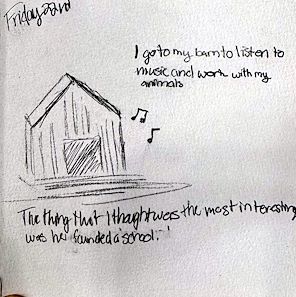 Friday 22nd
I go to my barn to listen to
music and work with my
animals
The thing that I thought was the most interesting
was he founded a school.